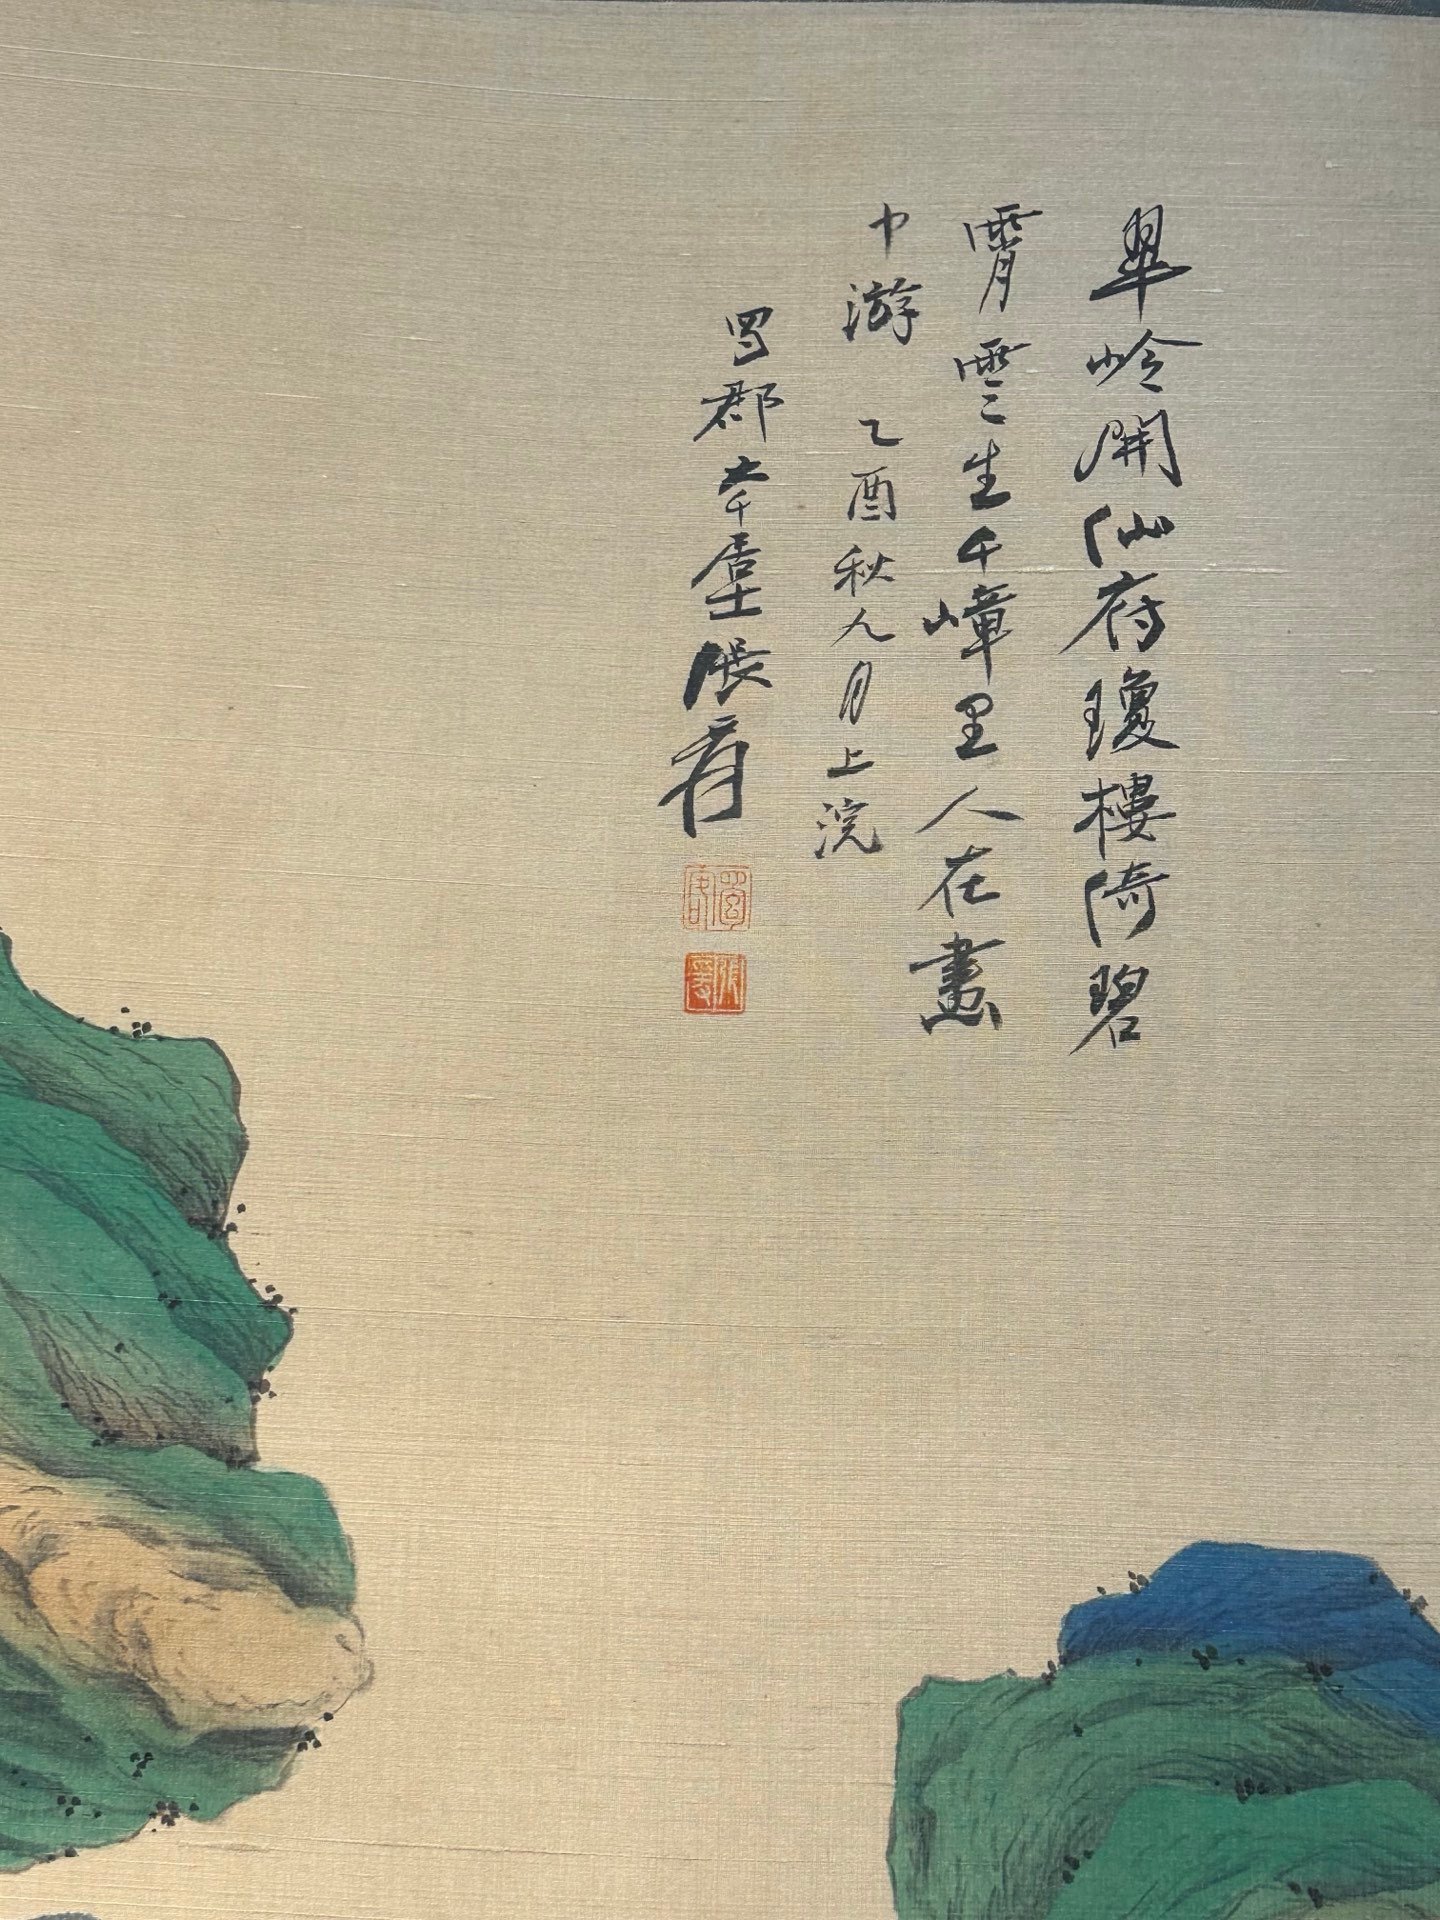 翠岭開仙府瓊樓倚碧
霄雲生千嶂里人在畫
中游 乙酉秋九月上浣
蜀郡大千居士張爰
張爰